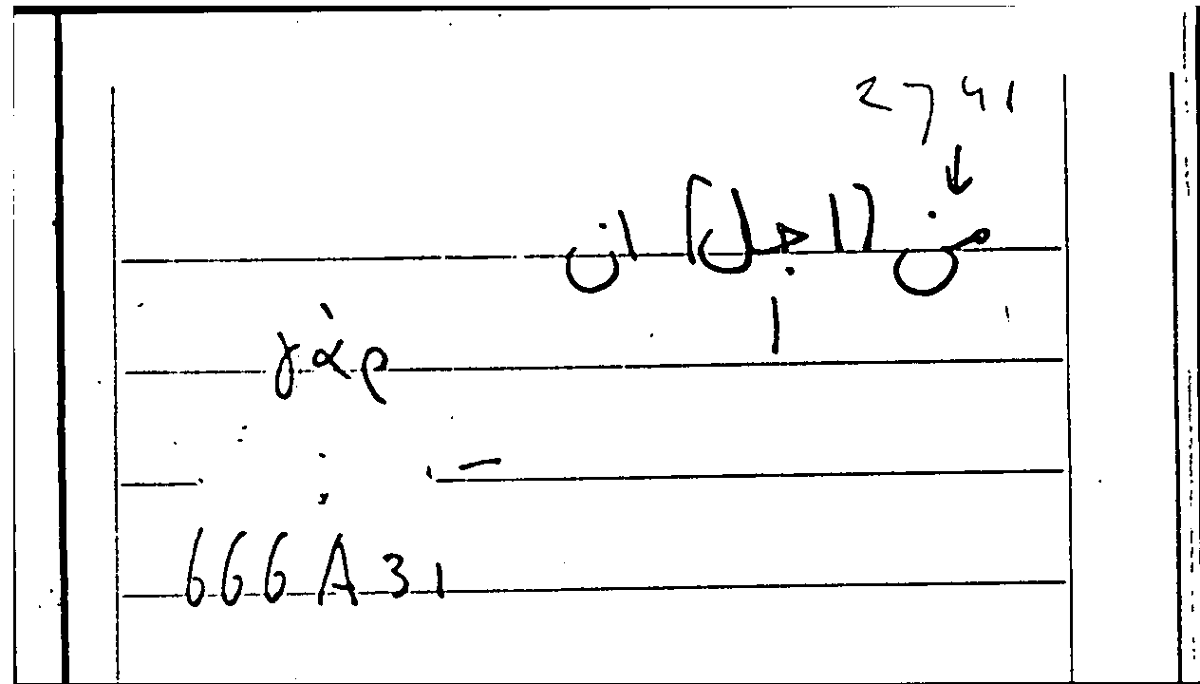 2741
↓
من [اجل] ان
γάρ
666A31